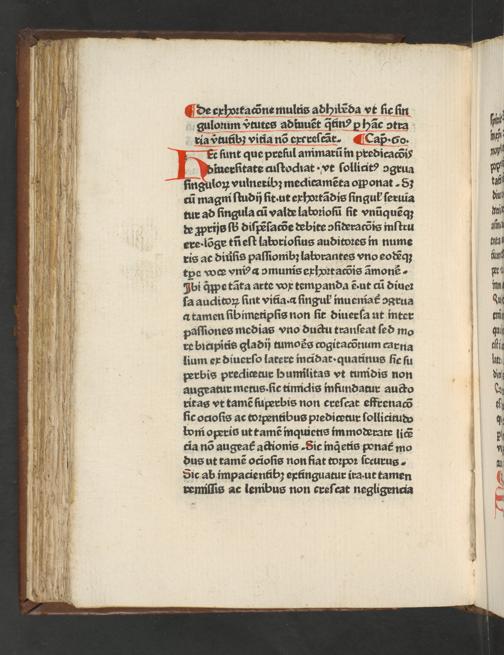 ¶De exhortacōne multis adhibēda vt sic sin
gulorum v̄tutes adiuuēt q̄tinꝰ ꝑ hāc ↄtra
ria v̄tutibꝫ vitia nō excrescāt. ¶Cap.60.
HEc sunt que presul animarū in predicacōīs
diuersitate custodiat. vt sollicitꝰ ↄgrua
singuloꝝ vulneribꝫ medicamēta opponat. Sꝫ
cū magni studij sit. ut exhortādis singul' seruia
tur ad singula cū valde laboriosū sit vnūquēqꝫ
de ꝓprijs sb dispēsacōne debite ↄsideracōis instru
ere. lōge tn̄ est laboriosius auditores in nume
ris ac diuīsis passionibꝫ laborantes vno eodēqꝫ
tꝑe voce vniꝰ ⁊ ↄmunis exhortacōis āmonē.
Ibi q̄ꝑe tāta arte vox temperanda ē. ut cū diuer
sa auditoꝝ sint vitia. ⁊ singul' inueniat̄ ↄgrua
⁊ tamen sibimetipsis non sit diuersa ut inter
passiones medias vno ductu transeat sed mo
re bicipitis gladij tumoēs cogitacōnum carna
lium ex diuerso latere incidat. quatinus sic su
perbis predicetur humilitas vt timidis non
augeatur metus. sic timidis infundatur aucto
ritas vt tamē superbis non crescat effrenacō
sic ociosis ac torpentibus predicetur sollicitudo
boni operis ut tamē inquietis immoderate licē
cia nō augeat̄ actionis. Sic inq̄etis ponat̄ mo
dus ut tamē ociosis non fiat torpor securus.
Sic ab impacientibꝫ extinguatur ira. ut tamen
remissis ac lenibus non crescat negligencia